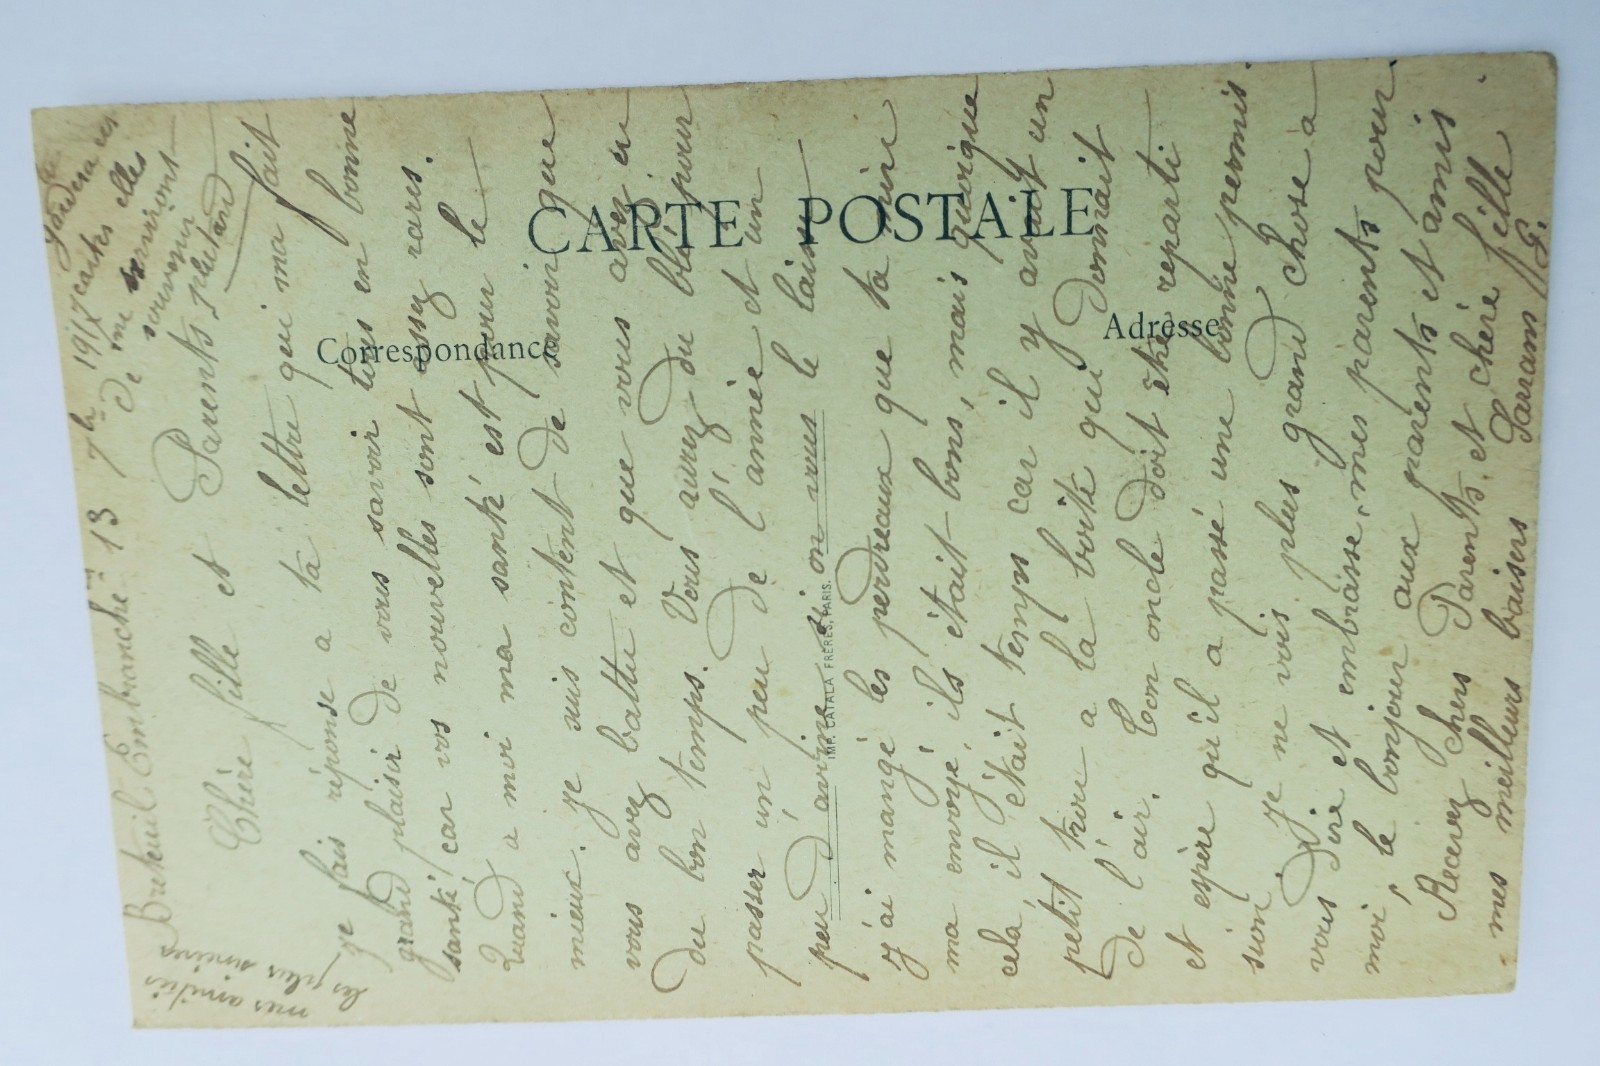 CARTE POSTALE
Correspondance
Adresse
IMP. CATALA FRÈRES, PARIS.
Breteuil Embranché 13 7bre 1917
cartes elles
me serviront
de souvenir
plutard
Chère fille et Parents,
je fais réponse a ta lettre qui ma fait
grand plaisir de vous savoir tous en bonne
santé, car vos nouvelles sont assez rares.
Quand a moi ma santé est pour le
mieux. je suis content de savoir que
vous avez battu et que vous avez eu
du bon temps. Vous aurez du blé pour
passer un peu de l'année et un
peu d'avoine si on vous le laisse
j'ai mangé les perdreaux que ta mère
ma envoyé, ils était bons, mais quoique
cela, il était temps car il y avait un
petit trou a la boite qui donnait
de l'air. Ton oncle doit être reparti
et espère qu'il a passé une bonne permis
sion je ne vois plus grand chose a
vous dire et embrasse, mes parents pour
moi, le bonjour aux parents et amis
Recevez chers Parents, et chère fille
mes meilleurs baisers Sarrans G.
mes amitiés
les plus sincères